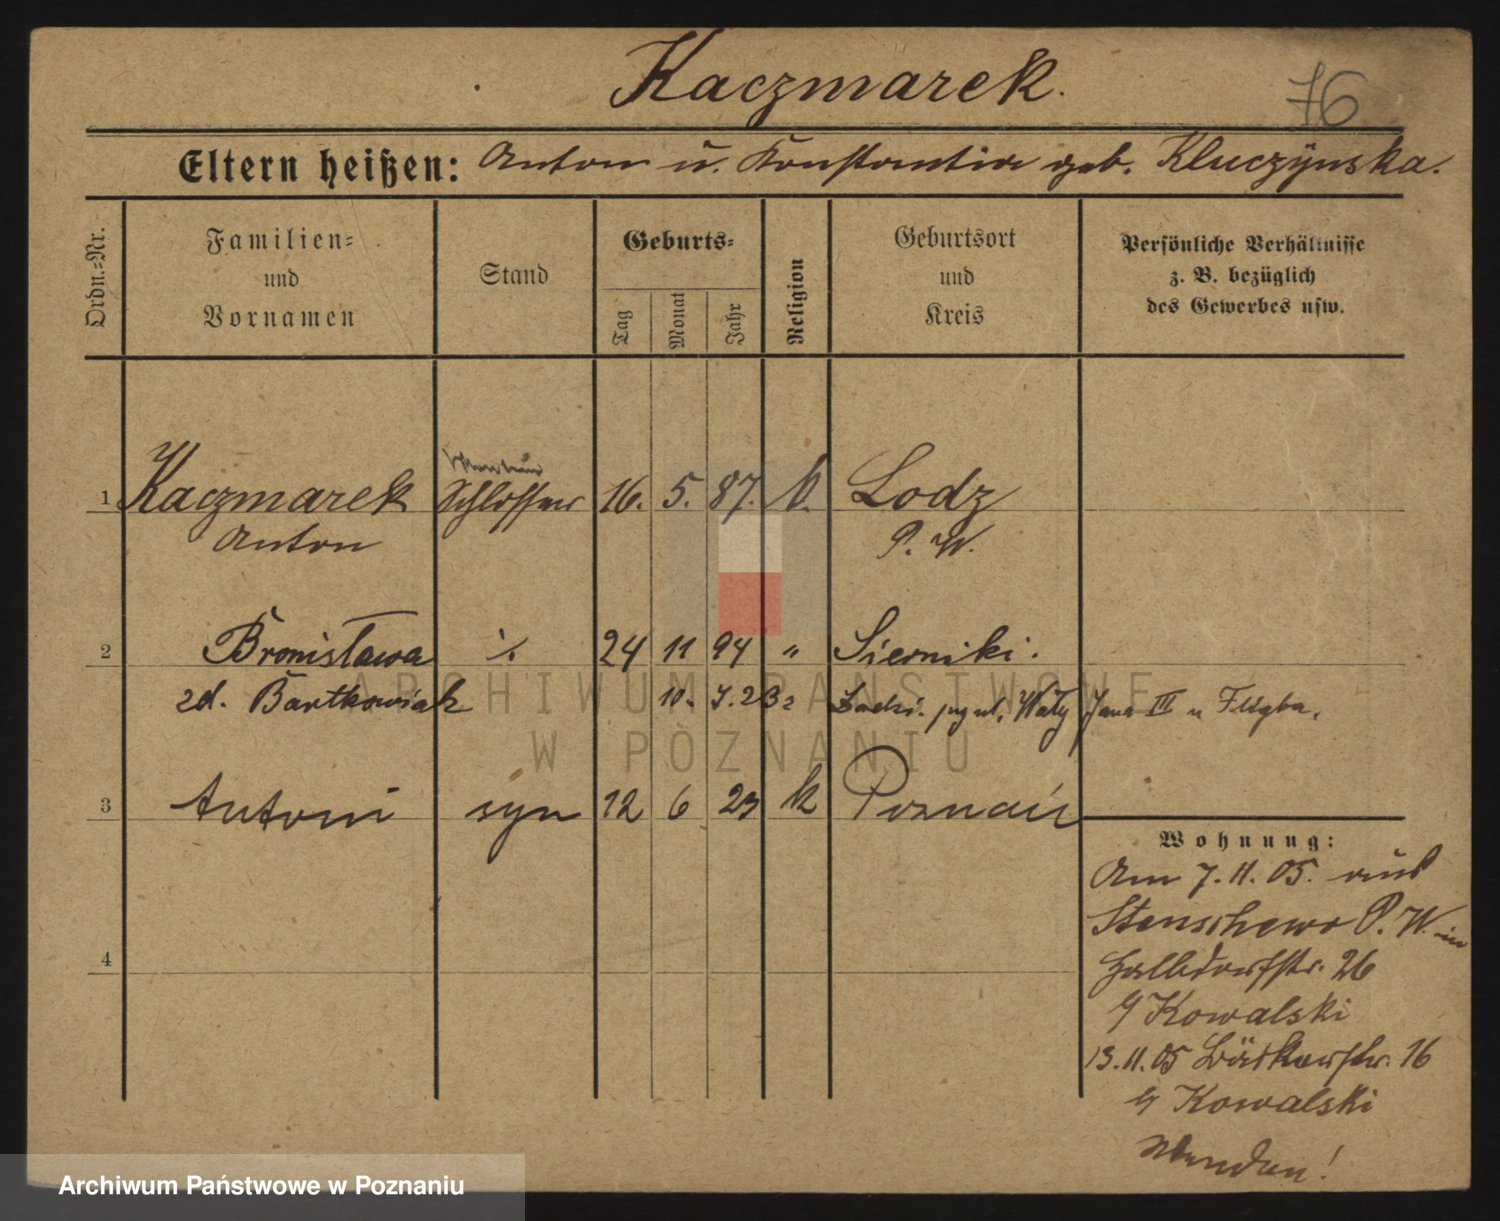 Kaczmarek.
76
Eltern heißen: Anton u. Konstantia geb. Kluczynska.
Ordn.=Nr.
Familien=
und
Vornamen
Stand
Geburts=
Tag
Monat
Jahr
Religion
Geburtsort
und
Kreis
Persönliche Verhältnisse
z. B. bezüglich
des Gewerbes usw.
1 Kaczmarek Schlosser 16. 5. 87. k. Lodz
Anton P. W.
2 Bronisława ·/. 24 11 94 " Sierniki.
zd. Bartkowiak 10. 7. 23 Wały Jana III u Fligba.
ARCHIWUM PAŃSTWOWE
W POZNANIU
3 Antoni syn 12 6 23 k Poznań
4
Wohnung:
Am 7.11.05. aus
Stenschewo P. W. in
Halbdorfstr. 26
b/ Kowalski
13.11.05 Bäckerstr. 16
b/ Kowalski
Wenden!
Archiwum Państwowe w Poznaniu